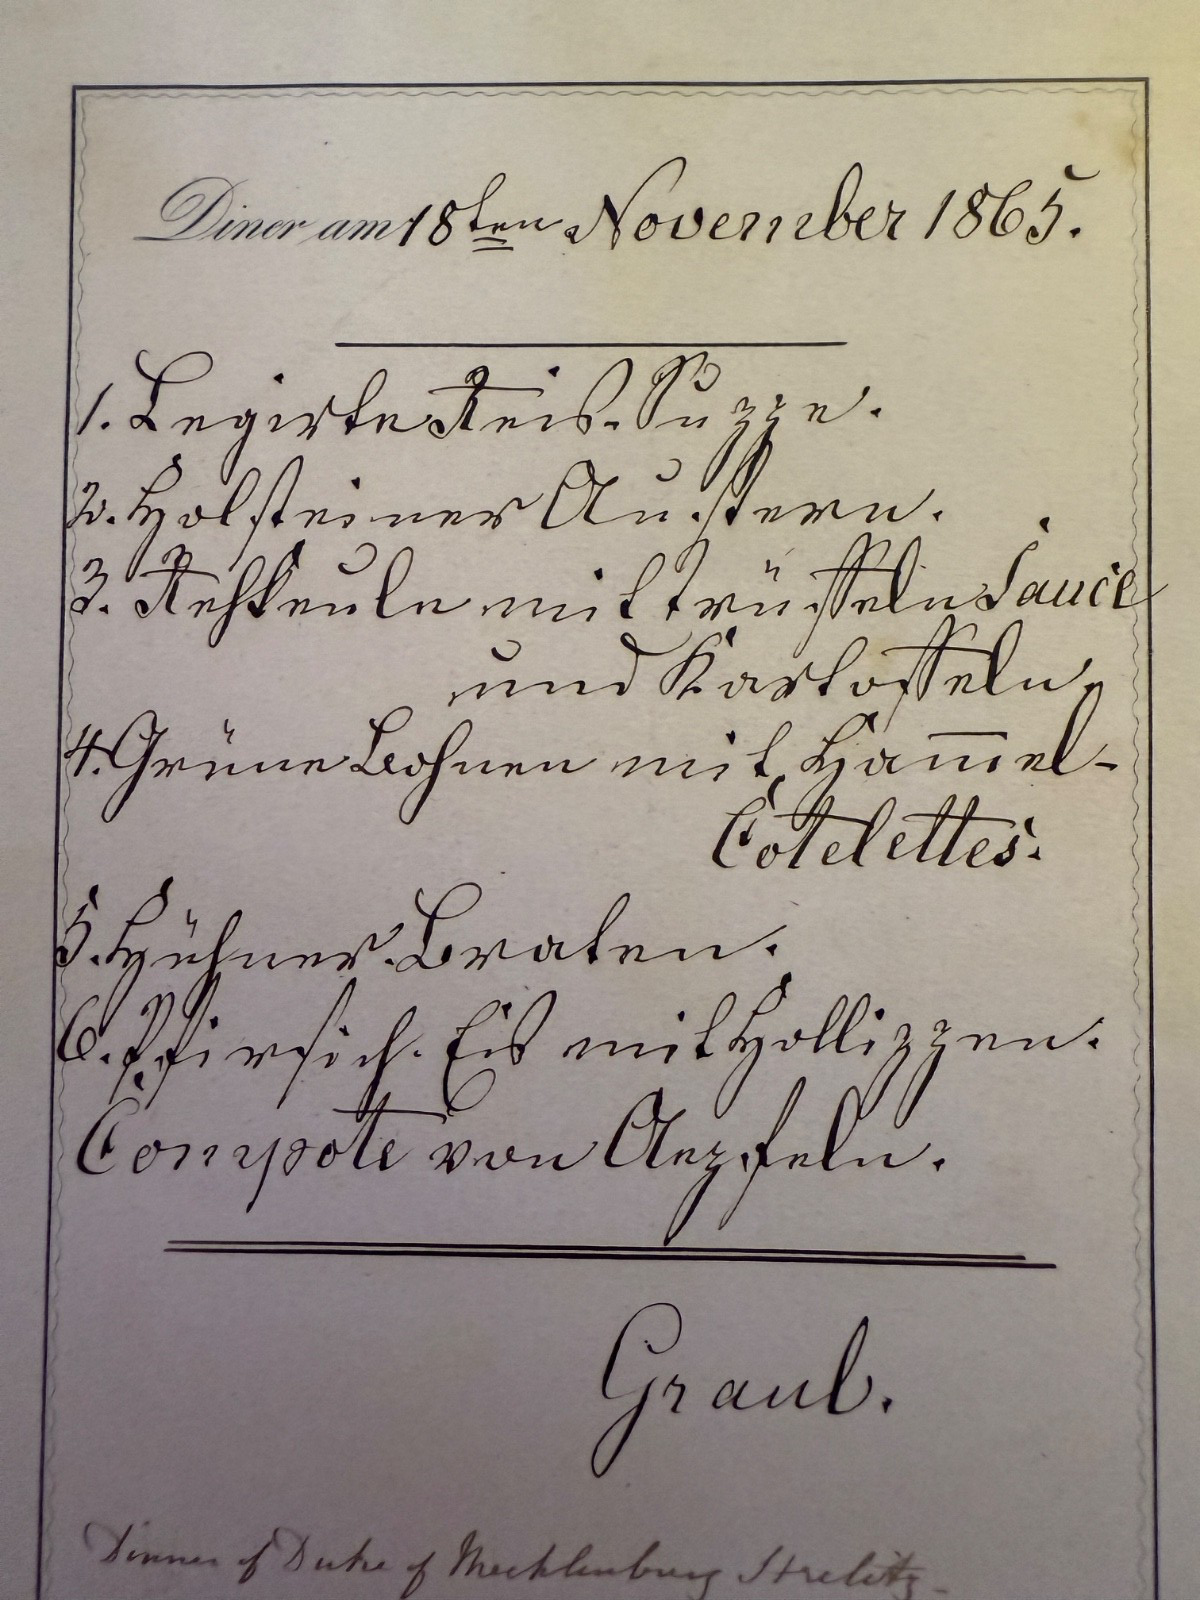 Diner am 18ten November 1865.
1. Legirte Reis-Suppe.
2. Holsteiner Austern.
3. Rehkeule mit trüffeln Sauce
und Kartoffeln,
4. Grüne Bohnen mit Ham̅el-
Cotelettes.
5. Hühner-Braten.
6. Pfirsich-Eis mit Hollippen.
Compote von Aepfeln.
Graul.
Dinner of Duke of Mecklenburg Strelitz-